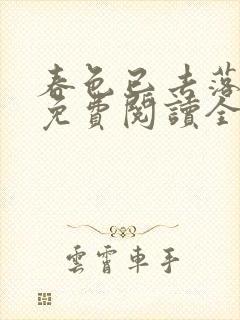 春色已去落
免費閱讀全
雲霄車手